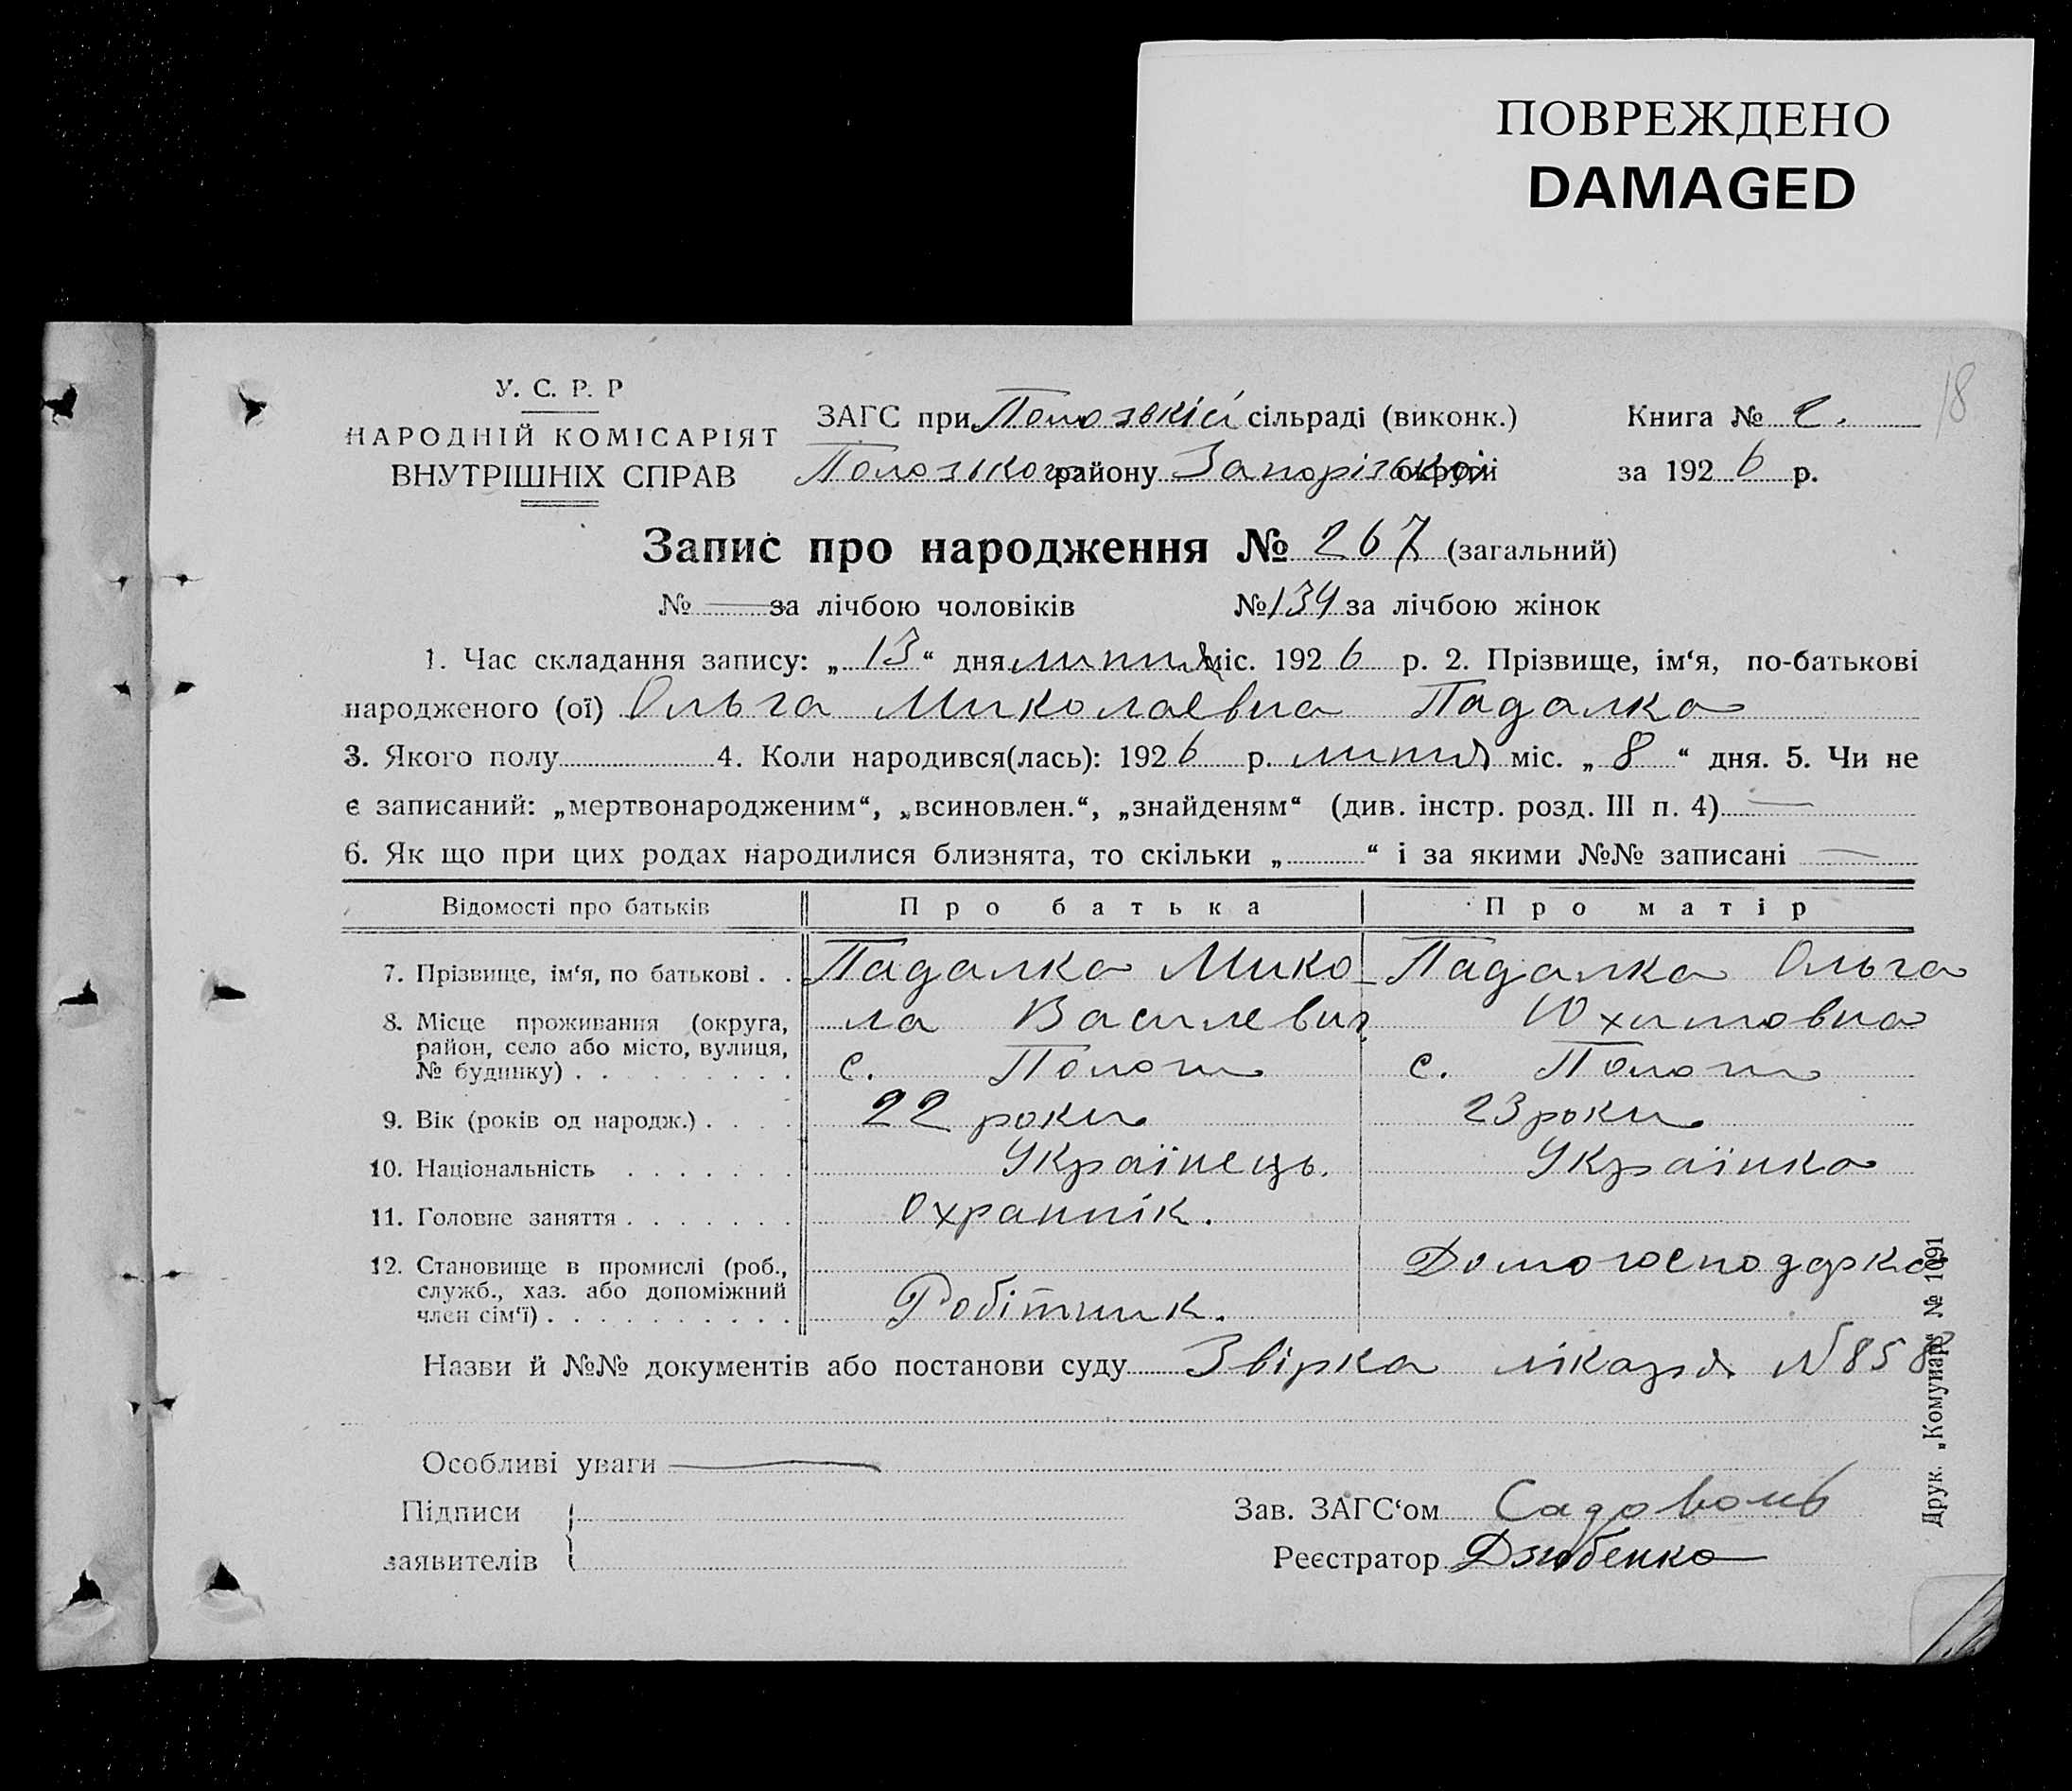 ПОВРЕЖДЕНО
DAMAGED
18
У. С. Р. Р
НАРОДНІЙ КОМІСАРІЯТ
ВНУТРІШНІХ СПРАВ
ЗАГС при Пологзькій сільраді (виконк.)
Книга № 2.
Пологзького району Запорізької округи
за 1926 р.
Запис про народження № 267 (загальний)
№ — за лічбою чоловіків № 134 за лічбою жінок
1. Час складання запису: „13“ дня липня міс. 1926 р. 2. Прізвище, ім‘я, по-батькові
народженого (ої) Ольга Миколаєвна Падалка
3. Якого полу 4. Коли народився(лась): 1926 р. липня міс. „8“ дня. 5. Чи не
є записаний: „мертвонародженим“, „всиновлен.“, „знайденям“ (див. інстр. розд. III п. 4) —
6. Як що при цих родах народилися близнята, то скільки „ “ і за якими №№ записані —
Відомості про батьків Про батька Про матір
7. Прізвище, ім‘я, по батькові . . Падалка Мико Падалка Ольга
8. Місце проживання (округа, ла Василевич Юхимовна
район, село або місто, вулиця,
№ будинку) . . . . . . . . . с. Пологи с. Пологи
9. Вік (років од народж.) . . . . 22 роки 23 роки
10. Національність . . . . . . . Українець. Українка
11. Головне заняття . . . . . . . Охраннік.
12. Становище в промислі (роб., Домогосподарка
служб., хаз. або допоміжний
член сім‘ї) . . . . . . . . . . Робітник.
Назви й №№ документів або постанови суду Звірка лікаря № 858
Особливі уваги —
Підписи
заявителів
Зав. ЗАГС‘ом
Реєстратор Дзюбенко
Друк. „Комунар“ № 1091